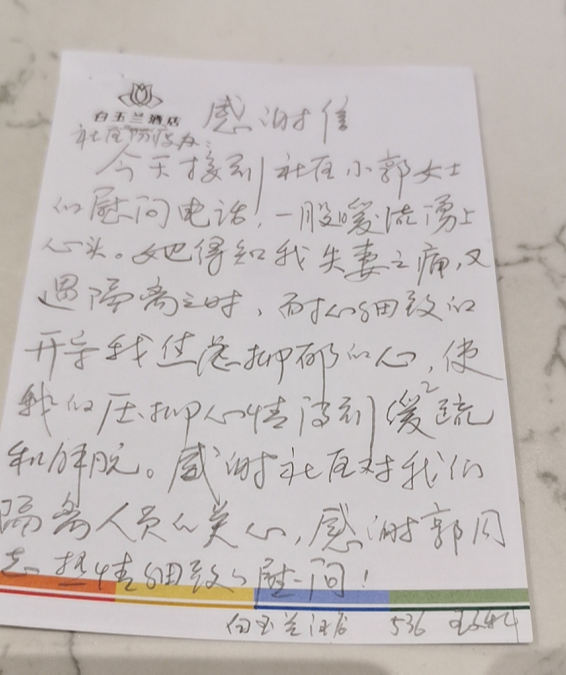 白玉兰酒店
感谢信
社区防疫办：
今天接到社区小郭女士
的慰问电话，一股暖流涌上
心头。她得知我失妻之痛，又
遇隔离之时，而耐心细致的
开导我悲抑郁的心，使
我的压抑心情得到缓疏
和解脱。感谢社区对我们
隔离人员的关心，感谢郭同
志热情细致的慰问！
白玉兰酒店 536